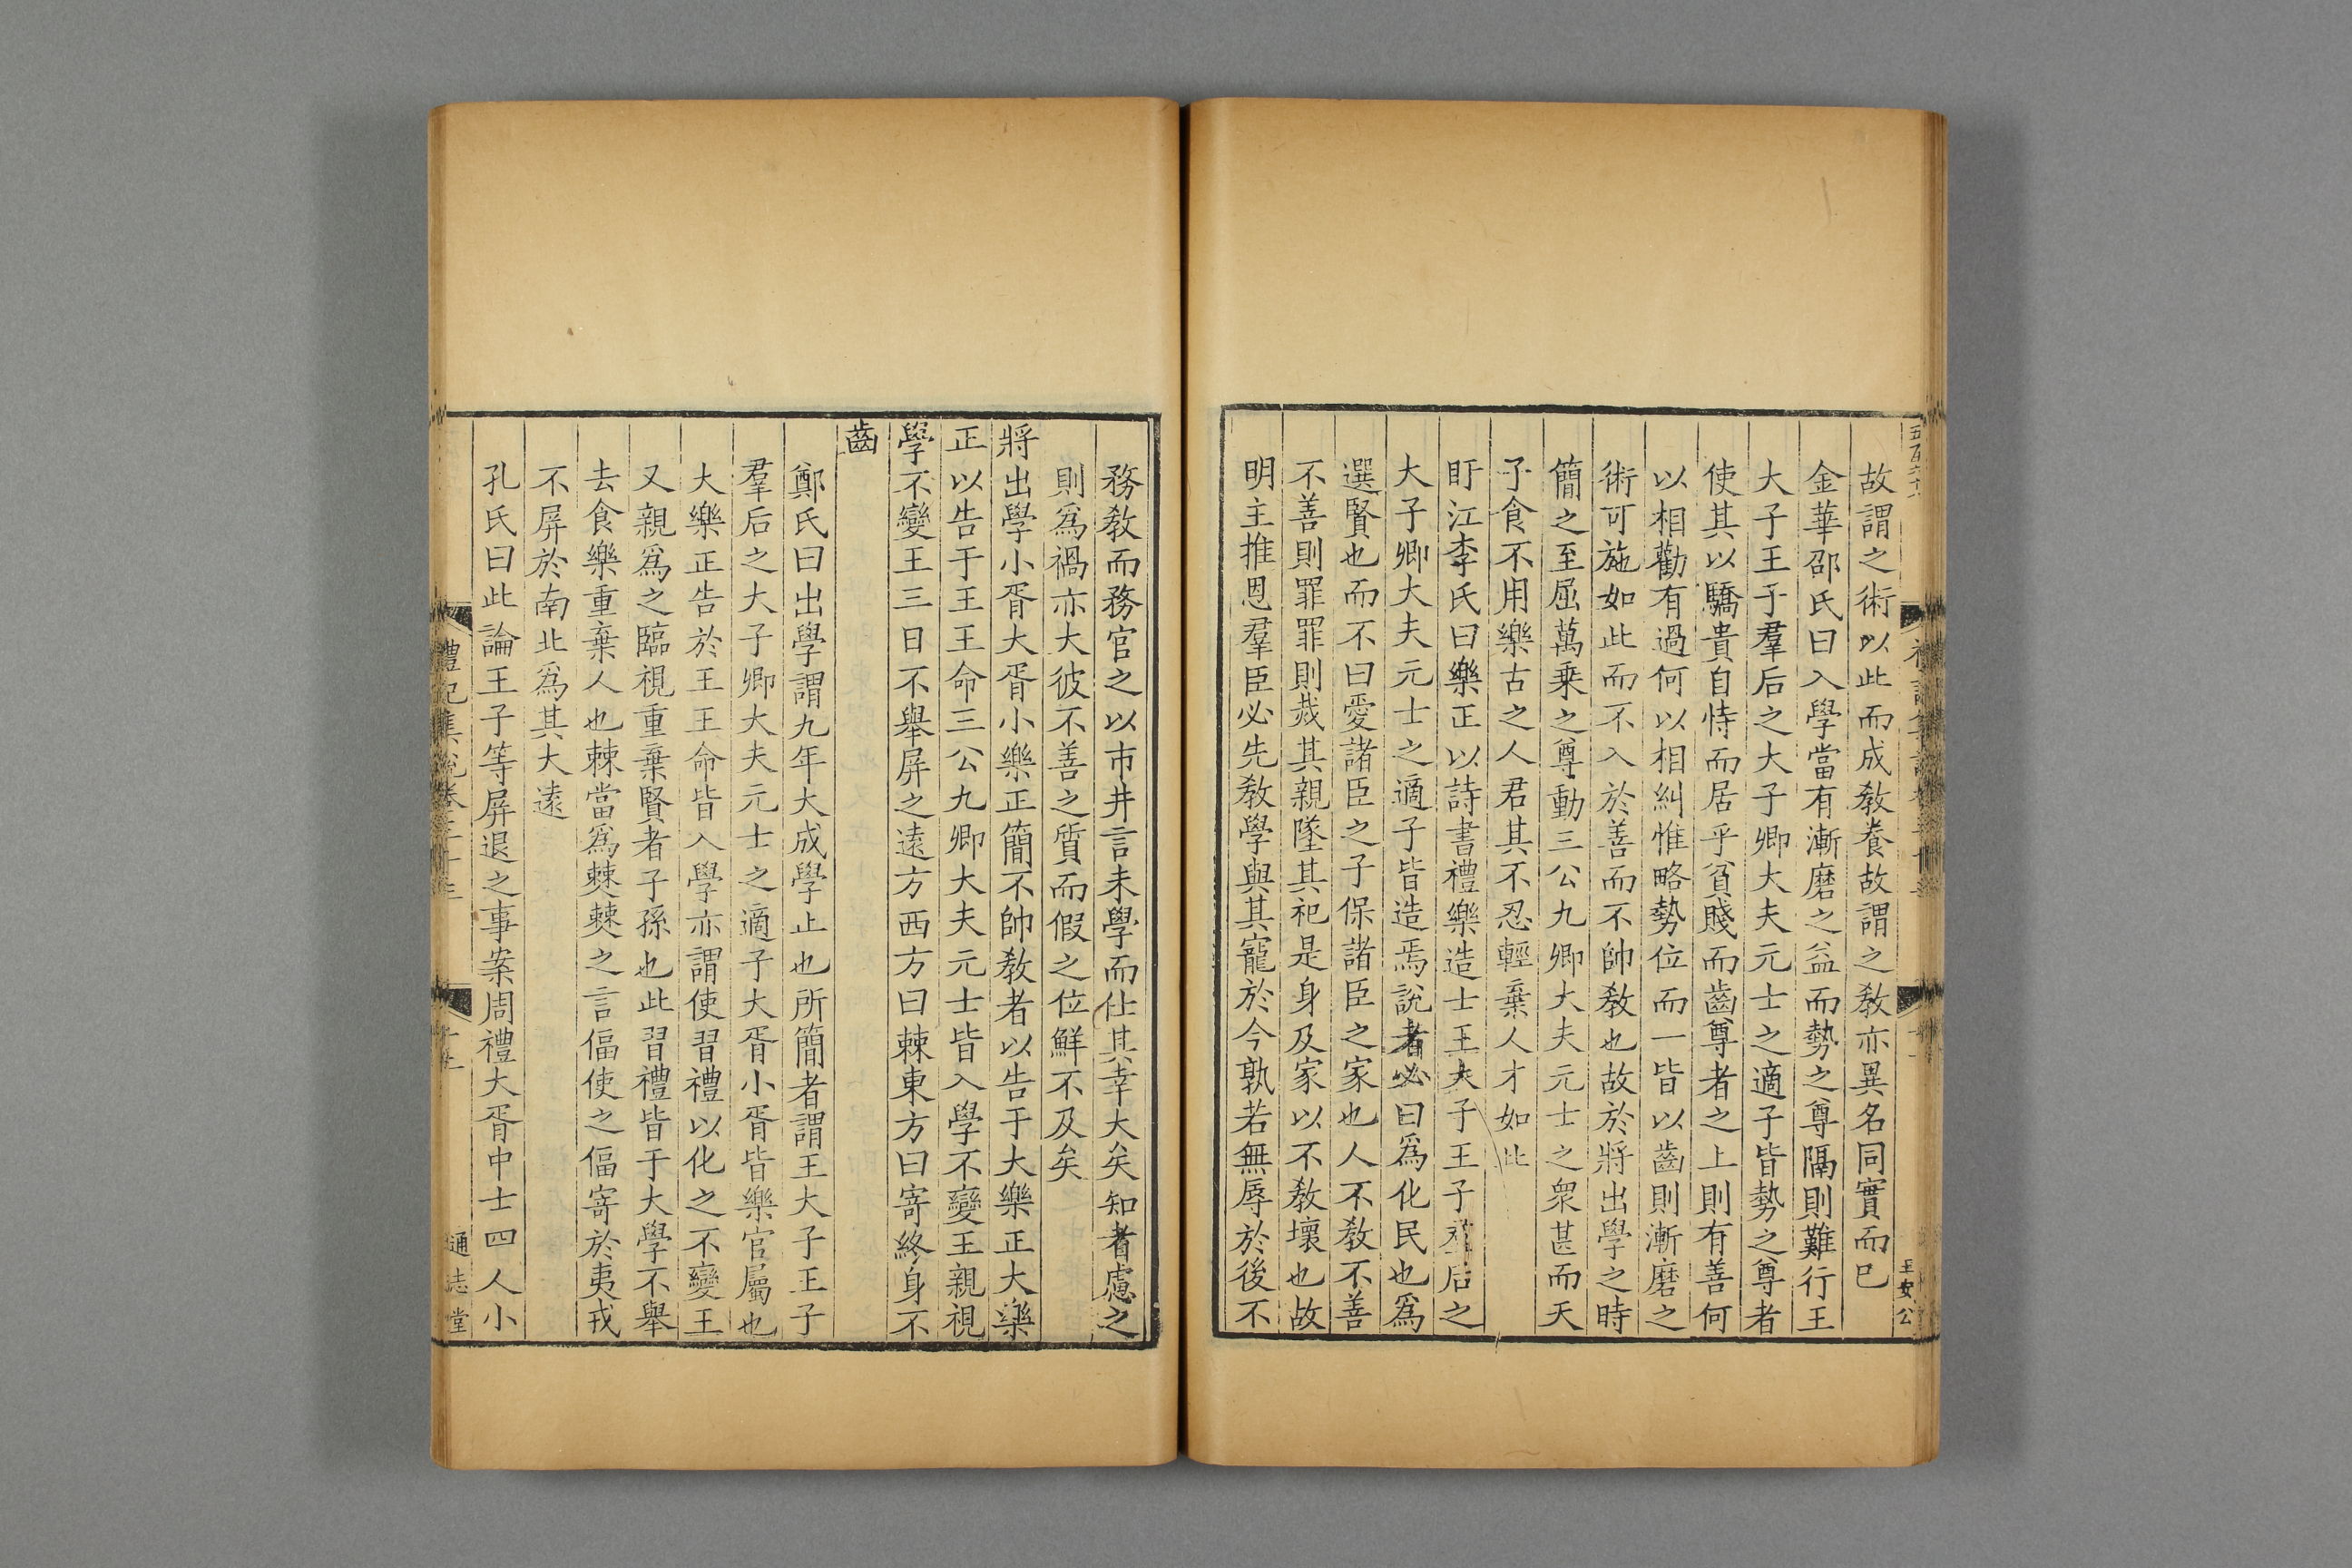 故謂之術以此而成敎養故謂之敎亦異名同實而已
金華邵氏曰入學當有漸磨之益而勢之尊隔則難行王
大子王子羣后之大子卿大夫元士之適子皆勢之尊者
使其以驕貴自恃而居乎貧賤而齒尊者之上則有善何
以相勸有過何以相糾惟略勢位而一皆以齒則漸磨之
術可施如此而不入於善而不帥敎也故於將出學之時
簡之至屈萬乗之尊動三公九卿大夫元士之衆甚而天
子食不用樂古之人君其不忍輕棄人才如此
盱江李氏曰樂正以詩書禮樂造士王大子王子羣后之
大子卿大夫元士之適子皆造焉說者必曰爲化民也爲
選賢也而不曰愛諸臣之子保諸臣之家也人不敎不善
不善則罪罪則烖其親墜其祀是身及家以不敎壞也故
明主推恩羣臣必先敎學與其寵於今孰若無辱於後不
王安公
務敎而務官之以市井言未學而仕其幸大矣知者慮之
則爲禍亦大彼不善之質而假之位鮮不及矣
將出學小胥大胥小樂正簡不帥敎者以告于大樂正大樂
正以告于王王命三公九卿大夫元士皆入學不變王親視
學不變王三日不舉屏之遠方西方曰棘東方曰寄終身不
齒
鄭氏曰出學謂九年大成學止也所簡者謂王大子王子
羣后之大子卿大夫元士之適子大胥小胥皆樂官屬也
大樂正告於王王命皆入學亦謂使習禮以化之不變王
又親爲之臨視重棄賢者子孫也此習禮皆于大學不舉
去食樂重棄人也棘當爲僰僰之言偪使之偪寄於夷戎
不屏於南北爲其大遠
孔氏曰此論王子等屏退之事案周禮大胥中士四人小
禮記集說卷
通志堂